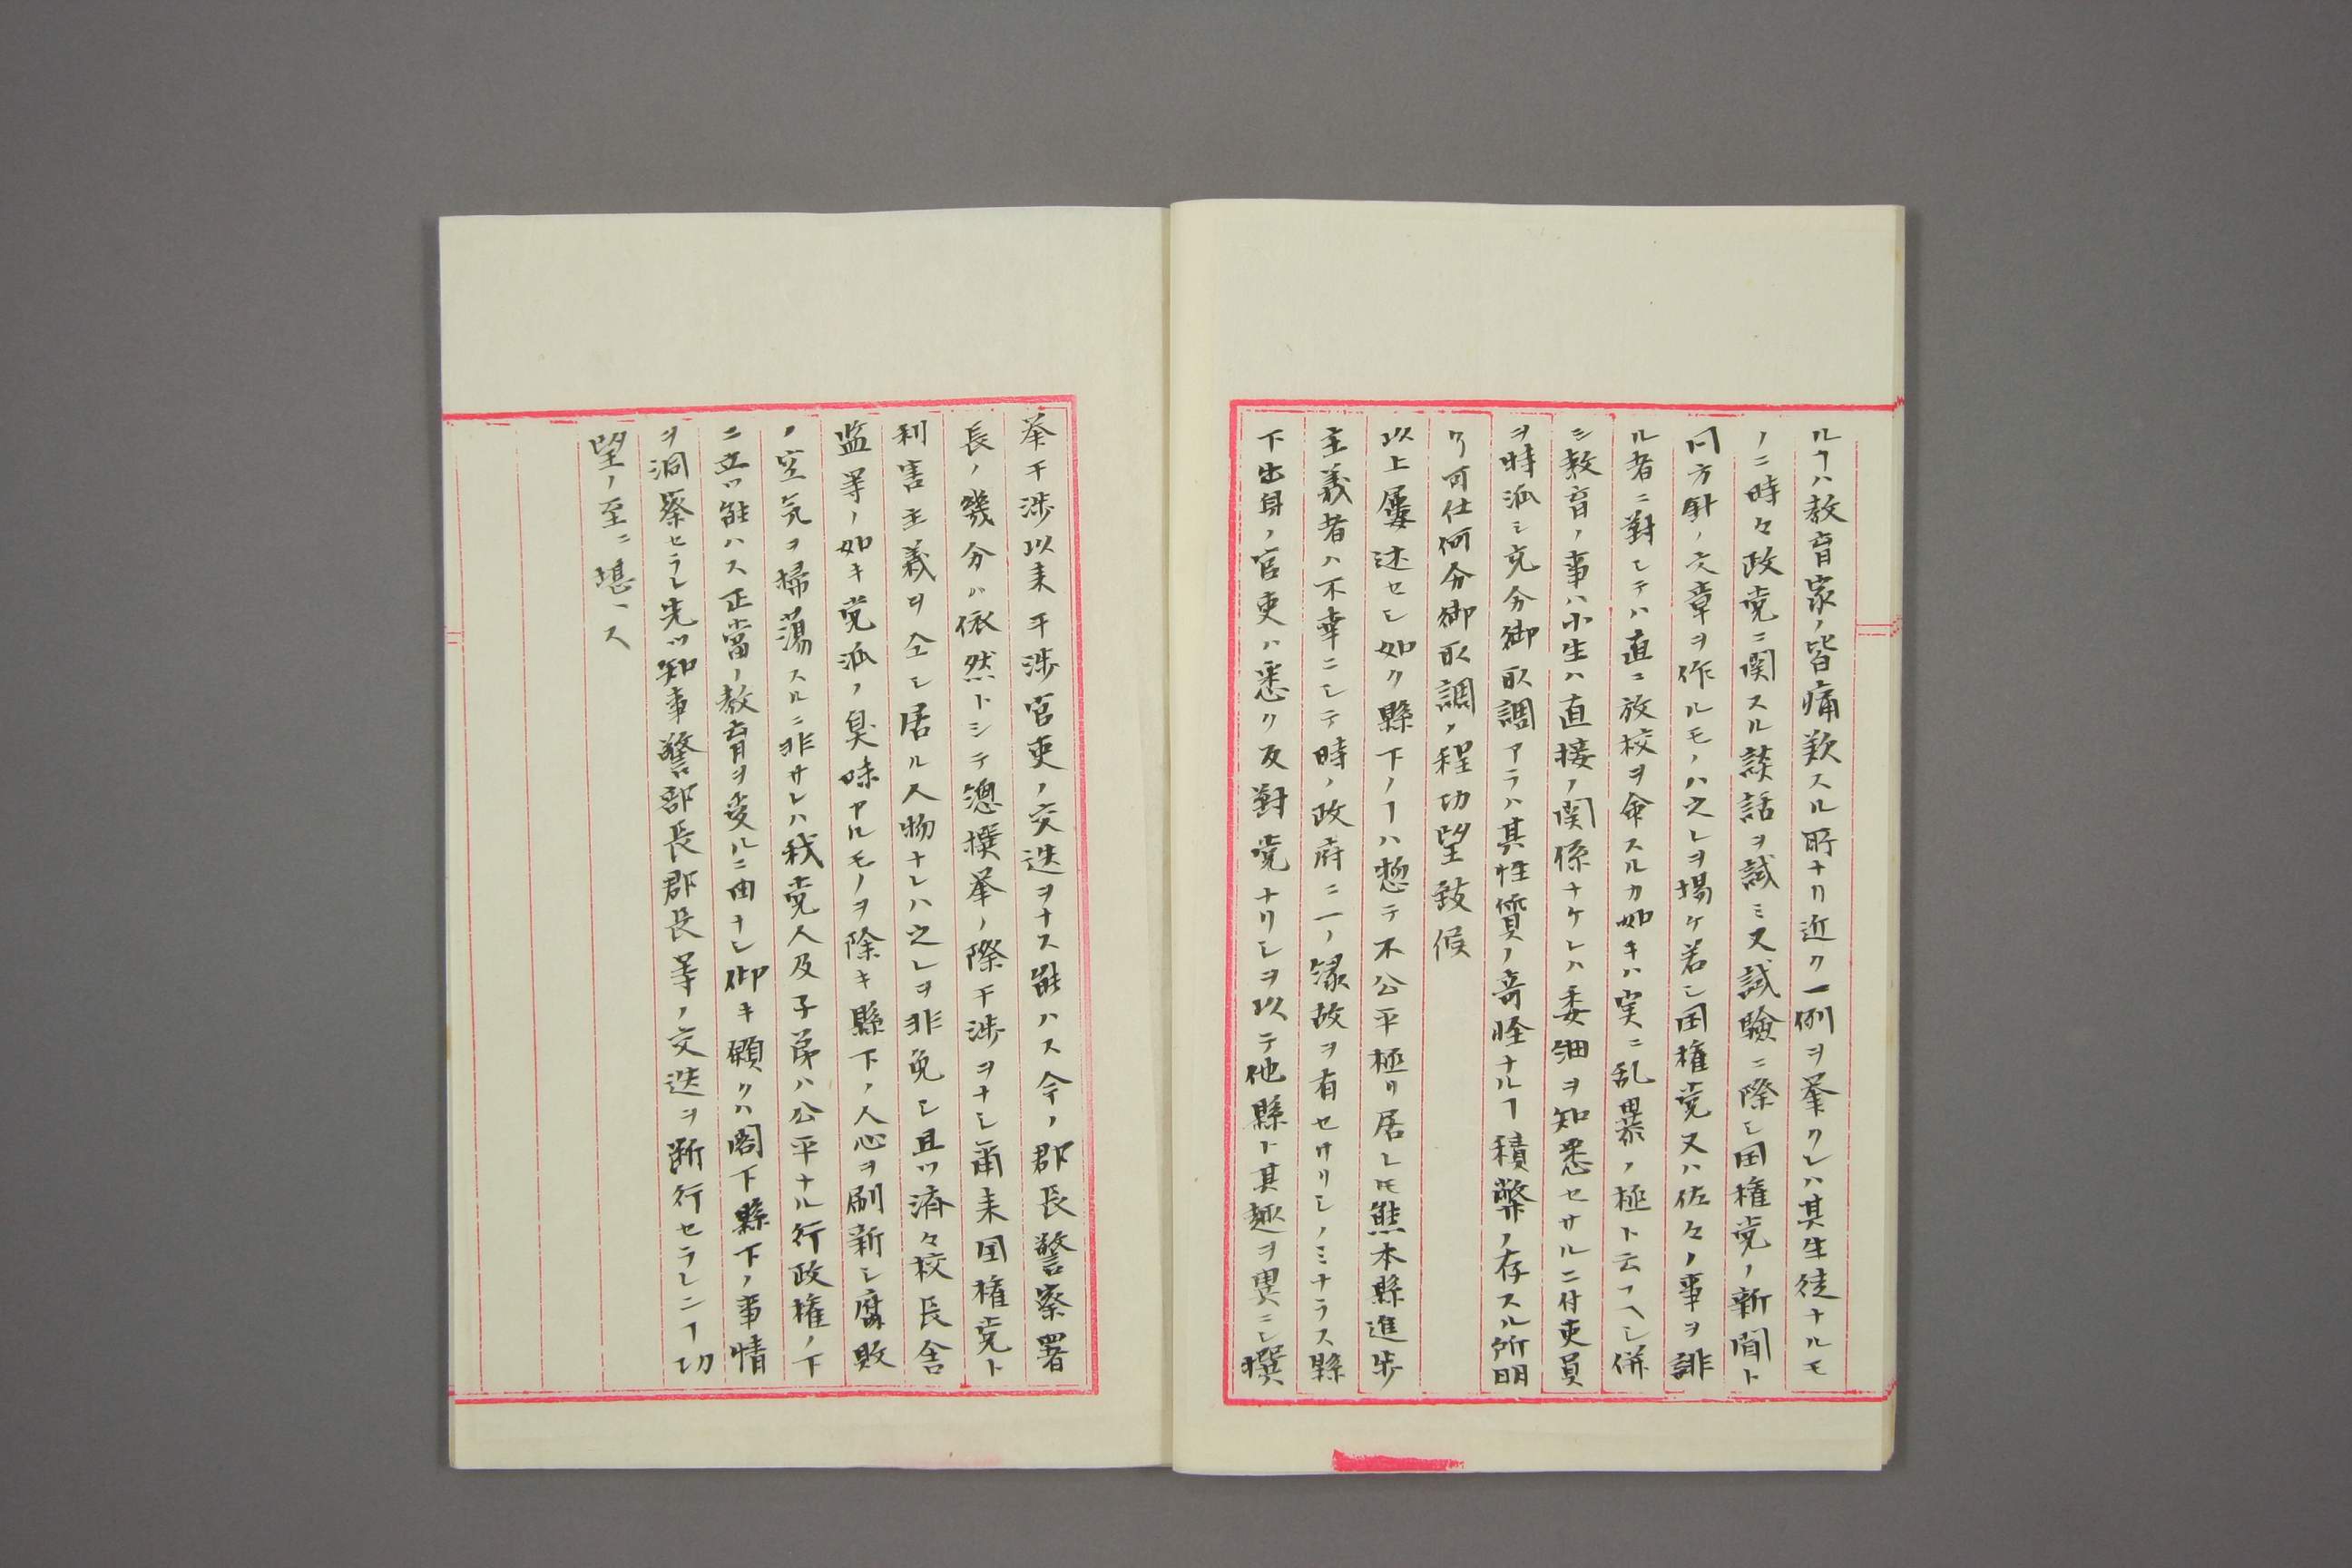 ルヿハ教育家ノ皆痛歎スル所ナリ近ク一例ヲ挙クレハ其生徒ナルモ
ノニ時々政党ニ関スル談話ヲ試ミ又試験ニ際シ国権党ノ新聞ト
同方針ノ文章ヲ作ルモノハ之レヲ揚ケ若シ国権党又ハ佐々ノ事ヲ誹
ル者ニ對シテハ直ニ放校ヲ命スルカ如キハ実ニ乱暴ノ極ト云フヘシ併
シ教育ノ事ハ小生ハ直接ノ関係ナケレハ委細ヲ知悉セサルニ付吏員
ヲ時派シ充分御取調アラハ其性質ノ奇怪ナルヿ積弊ノ存スル所明
ク可仕何分御取調ノ程切望致候
以上屢述セシ如ク縣下ノヿハ惣テ不公平極リ居レ𪜈熊本縣進歩
主義者ハ不幸ニシテ時ノ政府ニ一ノ縁故ヲ有セサリシノミナラス縣
下出身ノ官吏ハ悉ク反對党ナリシヲ以テ他縣ト其趣ヲ異ニシ撰
挙干渉以来干渉官吏ノ交迭ヲナス能ハス今ノ郡長警察署
長ノ幾分ハ依然トシテ總撰挙ノ際干渉ヲナシ爾来国権党ト
利害主義ヲ仝シ居ル人物ナレハ之レヲ非免シ且ツ済々校長舎
監等ノ如キ党派ノ臭味アルモノヲ除キ縣下ノ人心ヲ刷新シ腐敗
ノ空気ヲ掃蕩スルニ非サレハ我党人及子弟ハ公平ナル行政権ノ下
ニ立ツ能ハス正當ノ教育ヲ受ルニ由ナシ仰キ願クハ閣下縣下ノ事情
ヲ洞察セラレ先ツ知事警部長郡長等ノ交迭ヲ断行セラレンヿ切
望ノ至ニ堪ヘス